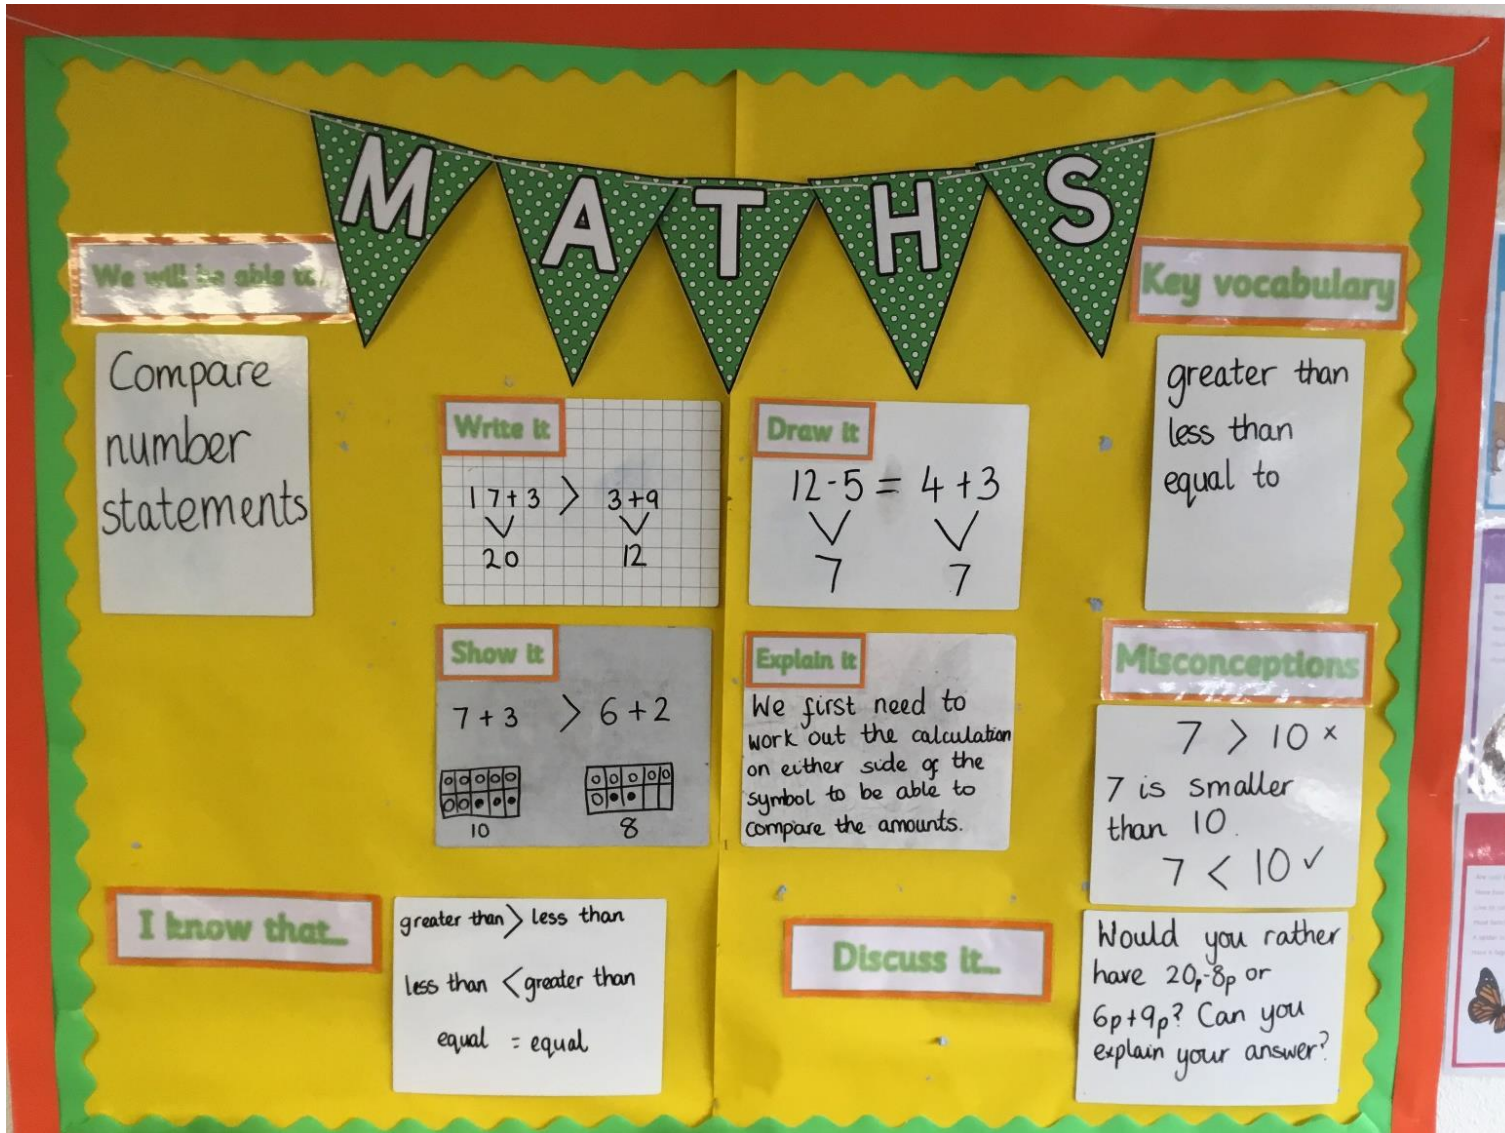 MATHS
We will be able to
Compare
number
statements
Write it
17+3 > 3+9
20 12
Draw it
12-5 = 4+3
7 7
Key vocabulary
greater than
less than
equal to
Show it
7+3 > 6+2
10 8
Explain it
We first need to
work out the calculation
on either side of the
symbol to be able to
compare the amounts.
Misconceptions
7 > 10 x
7 is smaller
than 10.
7 < 10 ✓
I know that...
greater than > less than
less than < greater than
equal = equal
Discuss it...
Would you rather
have 20p-8p or
6p+9p? Can you
explain your answer?